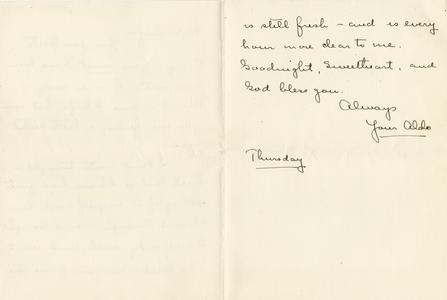 is still fresh – and is every
hour more dear to me.
Goodnight, Sweetheart, and
God bless you.
Always
Your Aldo
Thursday